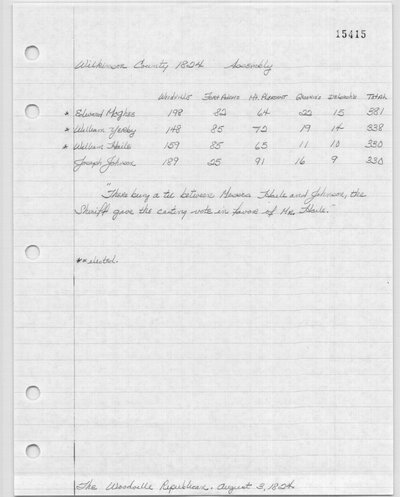 15415
Wilkinson County 1824 Assembly
Woodville Fort Adams Mt. Pleasant Total
* Edward 198 82 64 22 15 381
* William Yerby 148 85 72 19 14 338
* William Haile 159 85 65 11 10 330
Joseph Johnson 189 25 91 16 9 330
"There being a tie between Messrs Haile and Johnson, the
Sheriff gave the casting vote in favor of Mr. Haile."
** elected.
The Woodville Republican. August 3, 1824